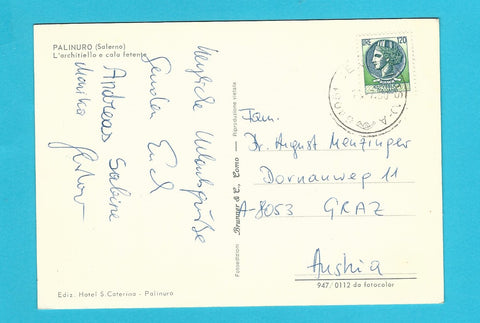 PALINURO (Salerno)
L'architiello e cala fetente
Herzliche Urlaubsgrüße
senden Euch
Andreas Sabine
Monika
Fotoedizioni Brunner & C., Como - Riproduzione vietata
Ediz. Hotel S. Caterina - Palinuro
LIRE 120
Fam.
Dr. August Menzinger
Dornauweg 11
A-8053 GRAZ
Austria
947/0112 da fotocolor